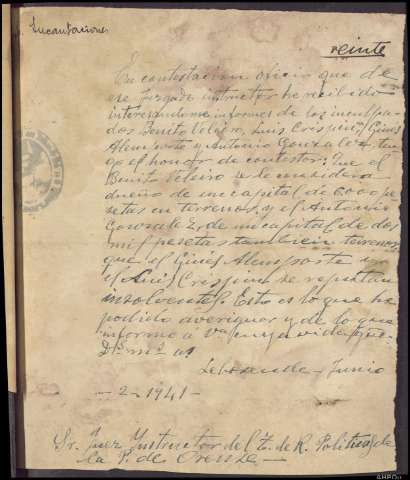 Incautaciones
veinte
En contestación oficio que de
ese Juzgado instructor he recibido
interesandome informes de los inculpa-
dos Benito Veleiro, Luis Crispin, Ginés
Alemparte y Antonio Gonzalez, ten-
go el honor de contestar: Que el
Benito Veleiro se le considera
dueño de un capital de 6000 pe-
setas en terrenos, y el Antonio
Gonzalez, de un capital de dos
mil pesetas tambien terrenos
que el Ginés Alemparte y
el Luis Crispin se reputan
insolventes. Esto es lo que he
podido averiguar y de lo que
informo a Vª cuya vida gue.
Dˢ mˢ aˢ
Lebosende - Junio
- 2 - 1941 -
Sr. Juez Instructor del T. de R. Politicas de
la P. de Orense -
AHPOu